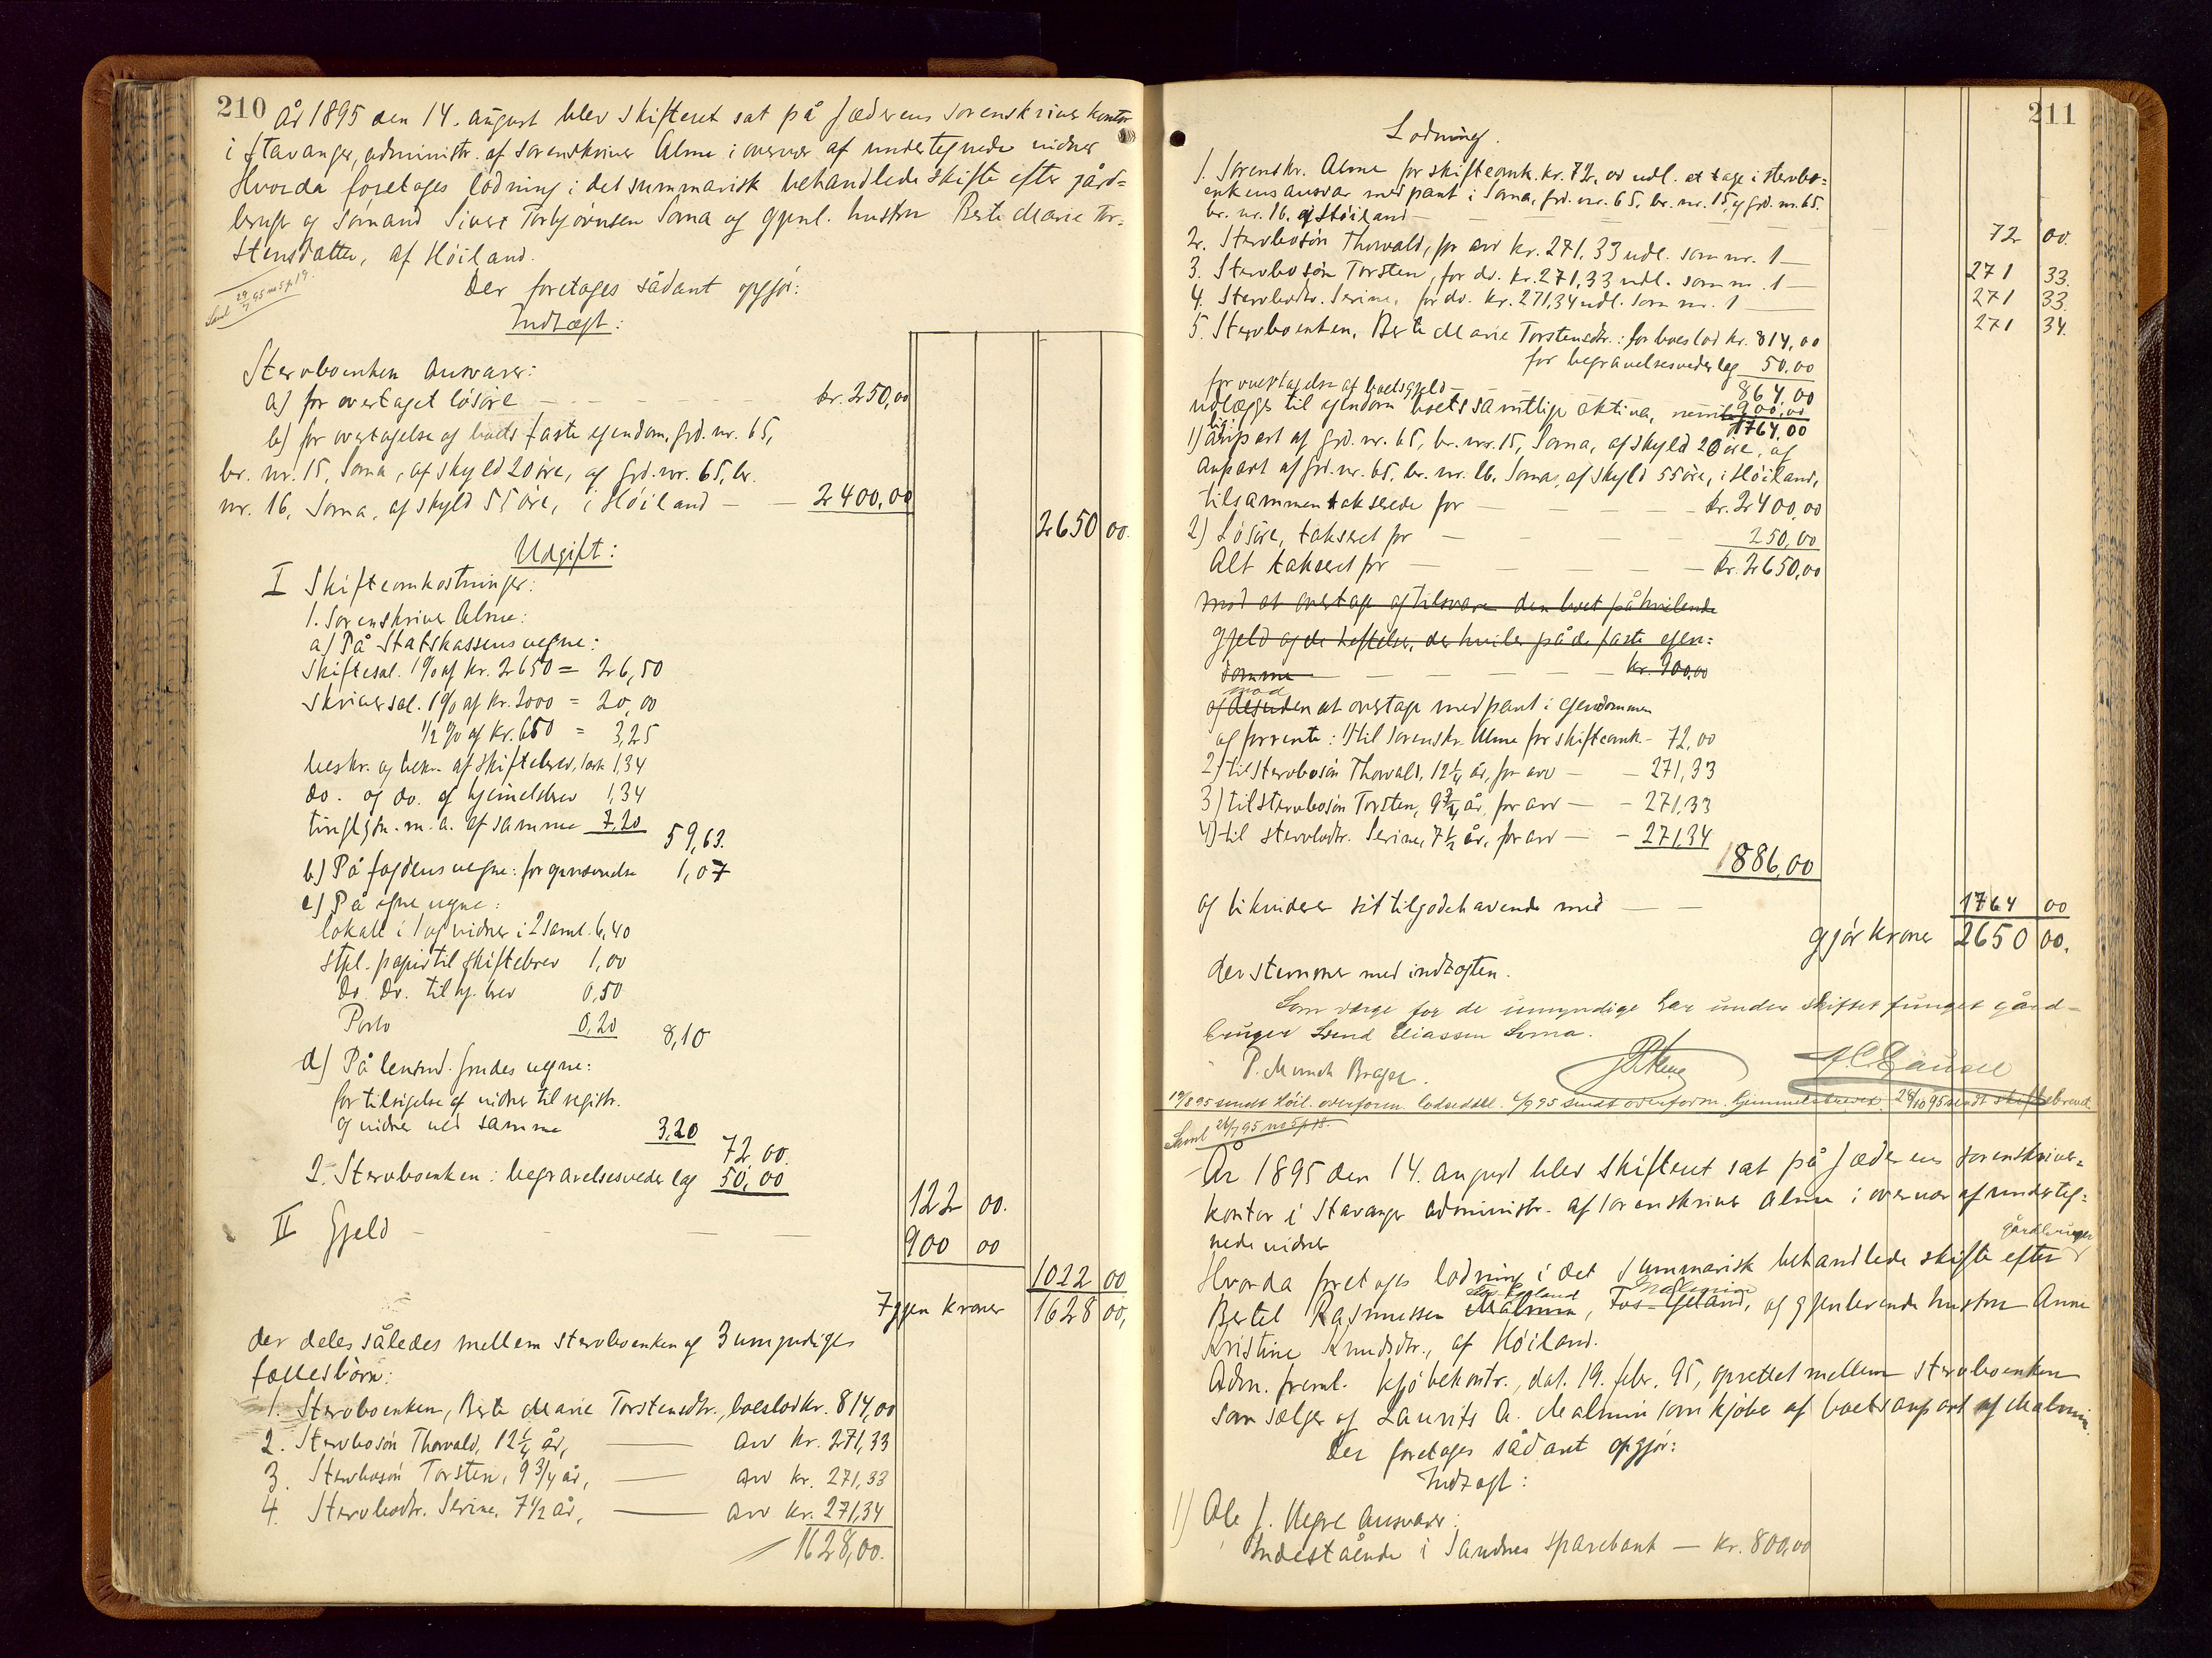 210
År 1895 den 14. august blev skifteret sat på Jæderens sorenskriverkontor
i Stavanger, administr. af sorenskriver Alme i overvær af undertegnede vidner
Hvorda foretoges lodning i det summarisk behandlede skifte efter gård=
bruger og sømand Sivert Torbjørnsen Soma og gjenl. hustru Berte Marie Tor-
stensdatter, af Höiland.
Saml 29/7 95 no 5 p 19.
Der foretages sådant opgjör:
Indtægt:
Stervboenken Ansvarer:
a) for overtaget lösöre — kr. 250,00
b) for overtagelse af boets faste ejendom, grd. nr. 65,
br. nr. 15, Soma, af skyld 20 öre, og grd. nr. 65, br.
nr. 16, Soma, af skyld 55 öre, i Höiland — 2400,00
2650 00.
Udgift:
I Skifteomkostninger:
1. Sorenskriver Alme:
a) På Statskassens vegne:
Skiftesal. 1% af kr. 2650 = 26,50
Skriversal. 1% af kr. 2000 = 20,00
1/2 % af kr. 650 = 3,25
beskr. og bekr. af skiftebrev, 1 ark 1,34
do. og do. af hjemmelsbrev 1,34
tinglysn. m. a. af samme 7,20 59,63.
b) På fogdens vegne: for gjenn­sendelse 1,07
c) På egne vegne:
lokale i 1 og vidner i 2 saml. 6,40
stpl. papir til skiftebrev 1,00
do. do. til hj. brev 0,50
Porto 0,20 8,10
d) På lensmd. Grudes vegne:
for tilsigelse af vidner til registr.
og vidner ved samme 3,20
72,00.
2. Stervboenken: begravelsesvederlag 50,00
122 00.
II Gjeld — 900 00
1022 00
Igjen kroner 1628 00,
der deles således mellem stervboenken og 3 umyndige
fællesbörn:
1. Stervboenken, Berte Marie Torstensdtr., boeslod kr. 814,00
2. Stervbosön Thorvald, 12 1/4 år, — arv kr. 271,33
3. Stervbosön Torsten, 9 3/4 år, — arv kr. 271,33
4. Stervbodtr. Serine, 7 1/2 år, — arv kr. 271,34
1628,00.
211
Lodning.
1. Sorenskr. Alme for skifteomk. kr. 72, er udl. at tage i stervbo=
enkens ansvar med pant i Soma, grd. nr. 65, br. nr. 15, og grd. nr. 65.
br. nr. 16, af Höiland — 72 00.
2. Stervbosön Thorvald, for arv kr. 271,33 udl. som nr. 1 — 271 33.
3. Stervbosön Torsten, for do. kr. 271,33 udl. som nr. 1 — 271 33.
4. Stervbodtr. Serine, for do. kr. 271,34 udl. som nr. 1 — 271 34.
5. Stervboenken, Berte Marie Torstensdtr.: for boeslod kr. 814,00
for begravelsesvederlag 50,00
864,00
for overtagelse af boets gjeld — 900,00
1764,00
udlægges til ejendom boets samtlige aktiva, nemlig:
1) anpart af grd. nr. 65, br. nr. 15, Soma, af skyld 20 öre, og
anpart af grd. nr. 65, br. nr. 16, Soma, af skyld 55 öre, i Höiland,
tilsammen takserede for — kr. 2400,00
2) Lösöre, takseret for — 250,00
Alt takseret for — kr. 2650,00
mod at overtage og tilsvare den boet påhvilende
gjeld og de heftelser, der hviler på de faste ejen=
domme — kr. 900,00
mod
og desuden at overtage med pant i ejendommen
og forrente: 1) til sorenskr. Alme for skifteomk. - 72,00
2) til stervbosön Thorvald, 12 1/4 år, for arv — 271,33
3) til stervbosön Torsten, 9 3/4 år, for arv — 271,33
4) til stervbodtr. Serine, 7 1/2 år, for arv — 271,34
886,00
og likviderer sit tilgodehavende med — 1764 00
gjör kroner 2650 00.
der stemmer med indtægten.
Som værge for de umyndige har under skiftet fungeret gård-
bruger Svend Eliassen Soma.
P. Munch Brager.
19/8 95 sendt Höil. overform. lodseddel. 4/9 95 sendt overform. hjemmelsbrevet. 24/10 95 sendt skiftebrevet
Saml 26/7 95 no 5 p 18.
År 1895 den 14. august blev skifteret sat på Jæderens sorenskriver=
kontor i Stavanger administr. af sorenskriver Alme i overvær af underteg=
nede vidner
Hvorda foretoges lodning i det summarisk behandlede skifte efter gårdbruger
Bertel Rasmussen Malmin, og gjenlevende hustru Anne
Kristine Knudsdtr., af Höiland.
Adm. freml. kjöbekontr., dat. 19. febr. 95, oprettet mellem stervboenken
som sælger og Laurits A. Malmin som kjöber af boets anpart af Malmin.
Der foretages sådant opgjör:
Indtægt:
1) Ole J. Vegre Ansvarer:
Indestående i Sandnes sparebank — kr. 800,00